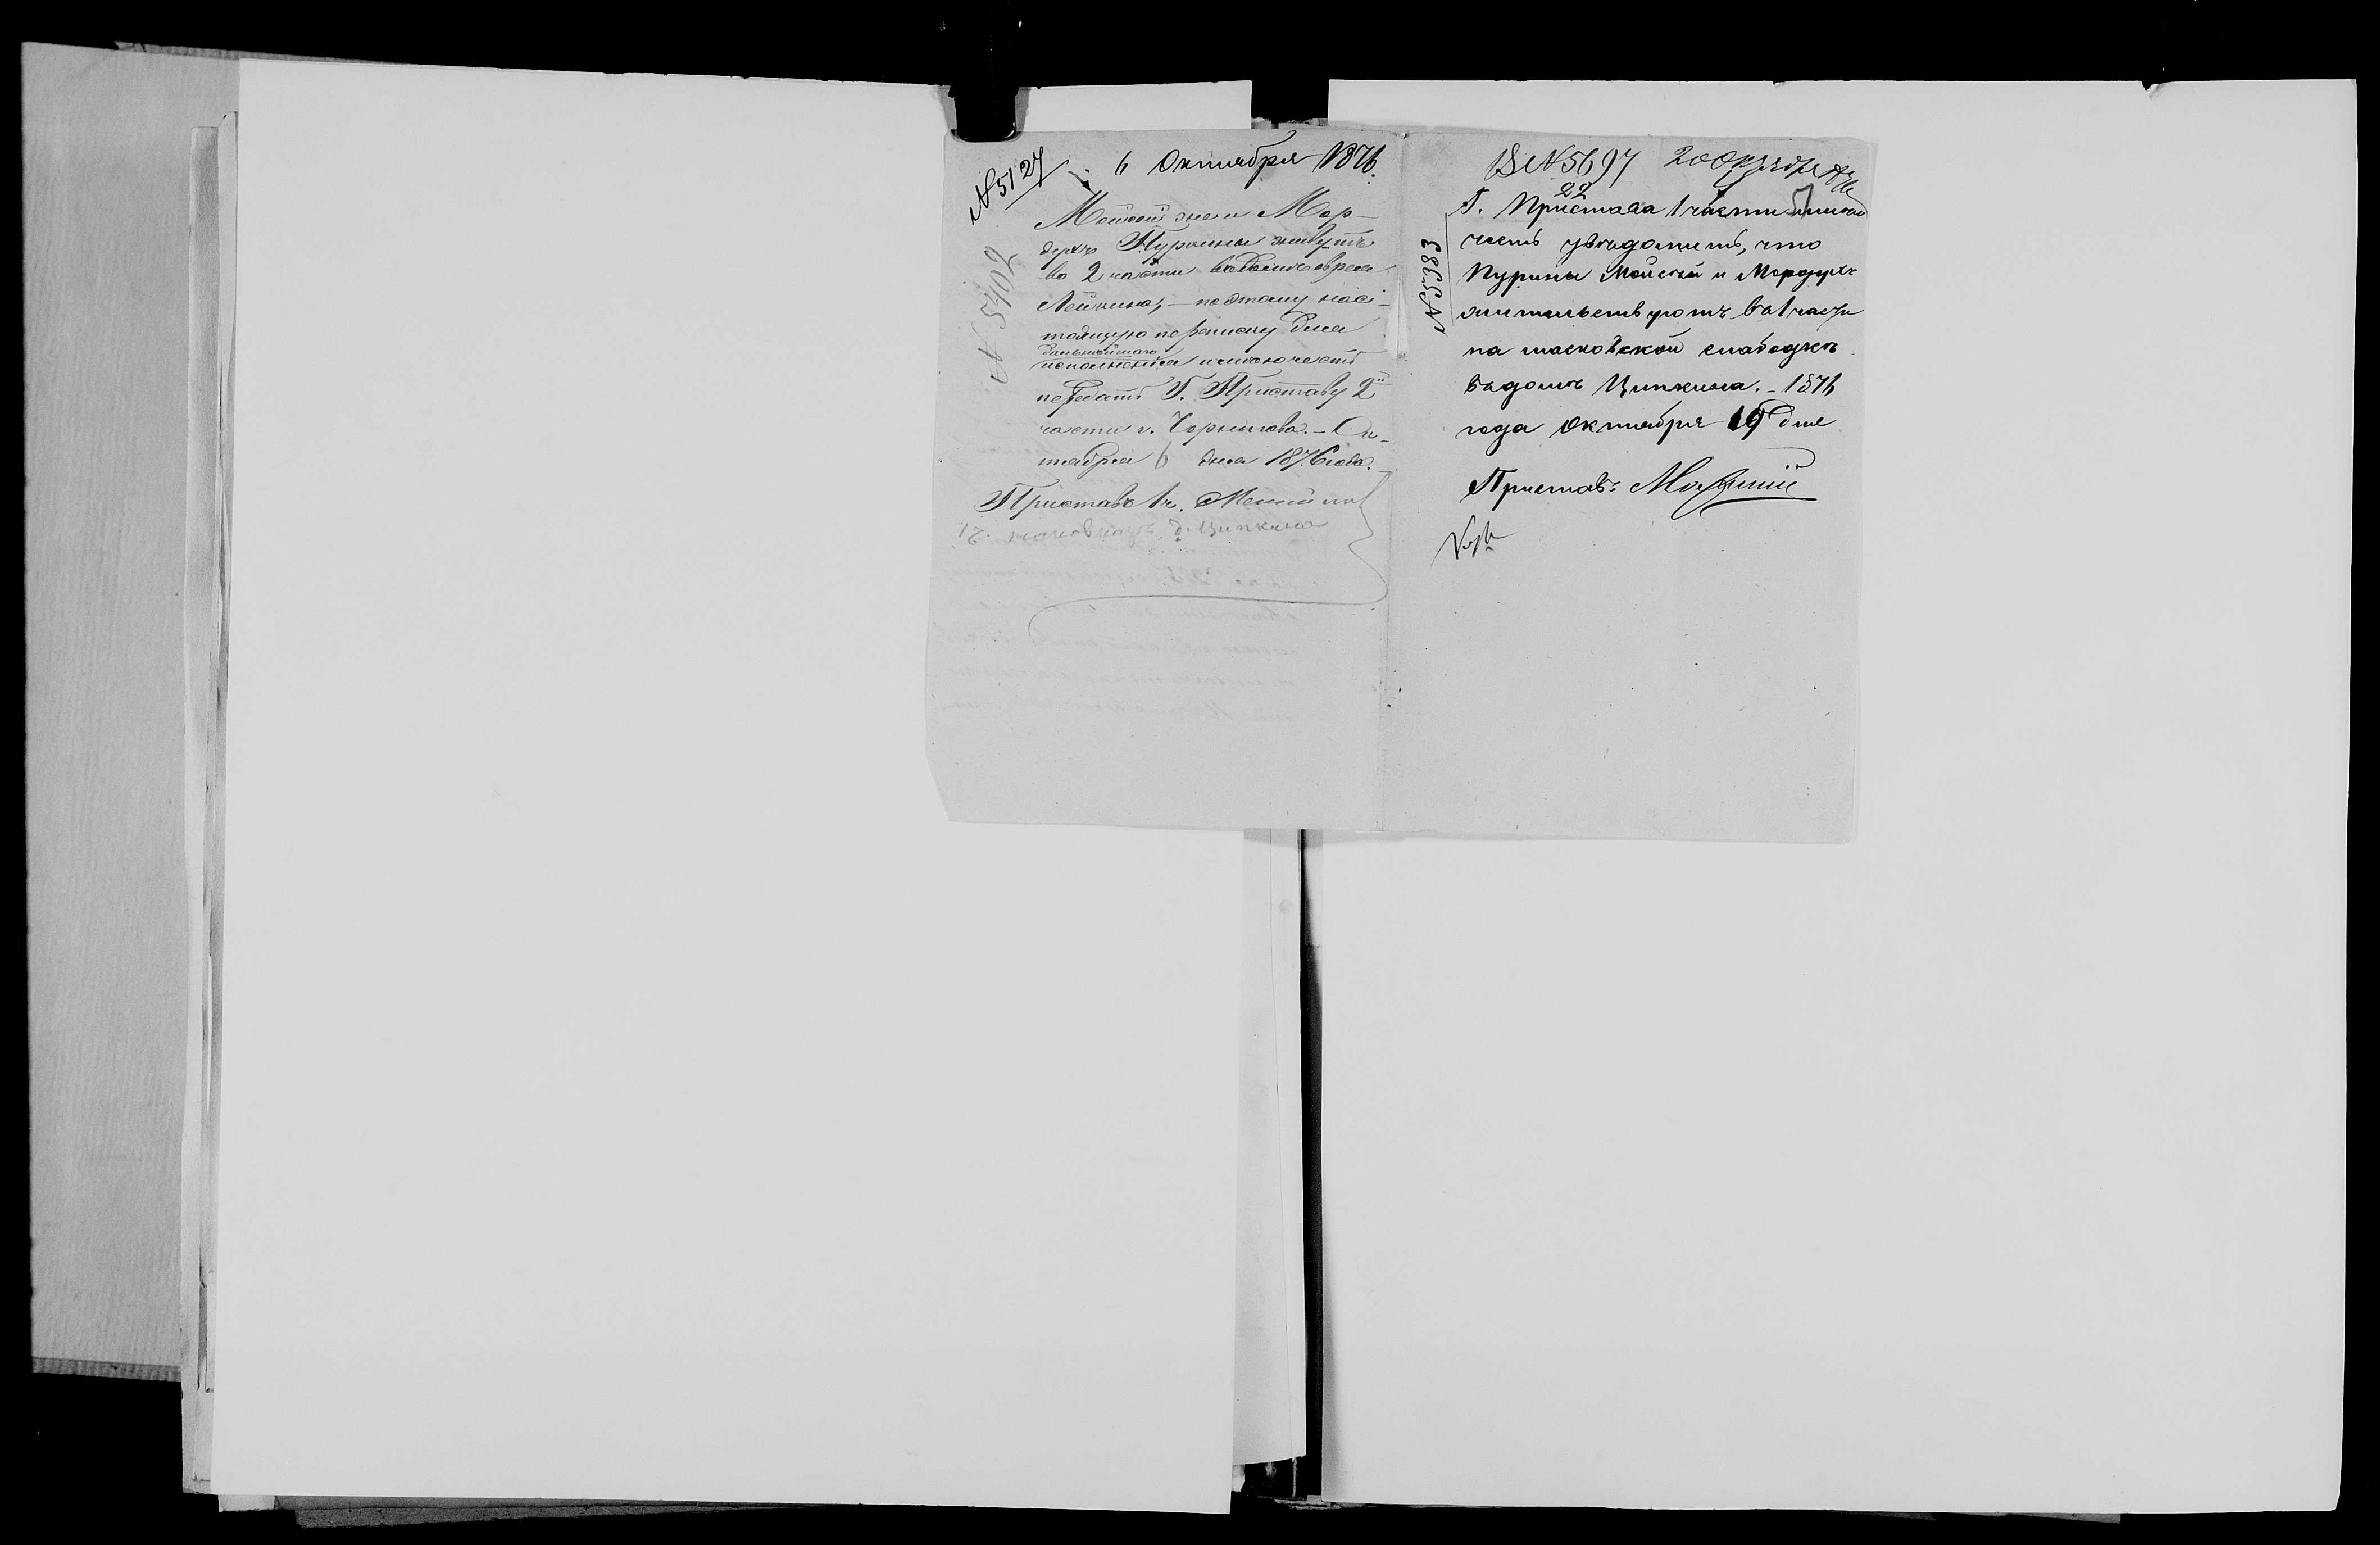 № 5127
6 Октября 1876.
№ 5402
Мойсей же и Мор-
духъ Пурины живутъ
во 2 части въ домѣ еврея
Лейкина, — поэтому нас-
тоящую переписку для
дальнѣйшаго
исполненія имѣю честь
передать Г. Приставу 2й
части г. Чернигова. — Ок-
тября 6 дня 1876 года.
Приставъ 1 ч.
1 ч. д. Ципкина
№ 5697 20 Октября 76
22
№ 5383
Г. Пристава 1 части имѣю
честь увѣдомить, что
Пурины Мойсей и Мордухъ
жительствуютъ во 1 части
на московской слабодкѣ
въ домѣ Ципкина. — 1876
года Октября 19 дня
Приставъ